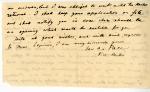 an answer, but I was obliged to wait until the Doctor
returned. I shall keep your application on file
and shall notify you in case there should be
an opening which would be suitable for you.
With all good wishes, and with kind regards
to Mrs. I am very sincerely yours,